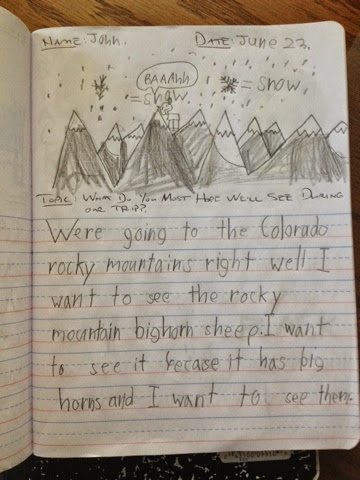 NAME: John. DATE: June 23.
BAAAhh
= snow.
= snow.
TOPIC: WHAT DO YOU MOST HOPE WE'LL SEE DURING
OUR TRIP?
Were going to the Colorado
rocky mountains right well I
want to see the rocky
mountain bighorn sheep. I want
to see it becase it has big
horns and I want to see them.